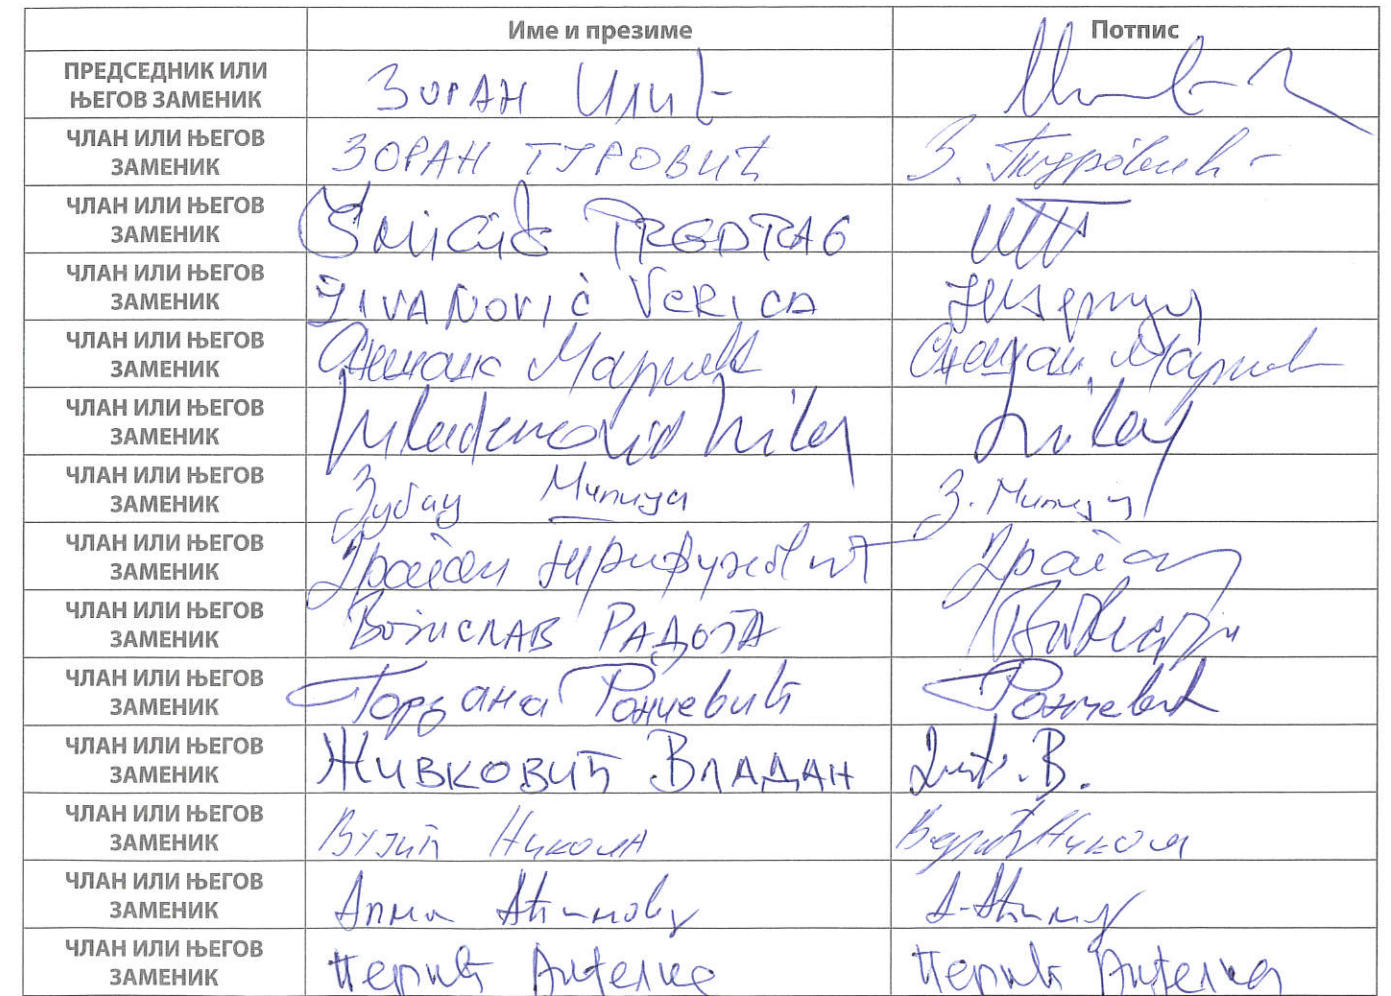 Име и презиме Потпис
ПРЕДСЕДНИК ИЛИ
ЊЕГОВ ЗАМЕНИК
ЗОРАН Илић
ЧЛАН ИЛИ ЊЕГОВ
ЗАМЕНИК
ЗОРАН ТУРОВИЋ З. Туровић
ЧЛАН ИЛИ ЊЕГОВ
ЗАМЕНИК
PREDRAG
ЧЛАН ИЛИ ЊЕГОВ
ЗАМЕНИК
ŽIVANOVIĆ VERICA
ЧЛАН ИЛИ ЊЕГОВ
ЗАМЕНИК
Марић Марић
ЧЛАН ИЛИ ЊЕГОВ
ЗАМЕНИК
Mladenović
ЧЛАН ИЛИ ЊЕГОВ
ЗАМЕНИК
Зубац Милица З. Милица
ЧЛАН ИЛИ ЊЕГОВ
ЗАМЕНИК
Драган Драган
ЧЛАН ИЛИ ЊЕГОВ
ЗАМЕНИК
ВОЈИСЛАВ РАДОЈА
ЧЛАН ИЛИ ЊЕГОВ
ЗАМЕНИК
Гордана Рончевић Рончевић
ЧЛАН ИЛИ ЊЕГОВ
ЗАМЕНИК
ЖИВКОВИЋ ВЛАДАН В.
ЧЛАН ИЛИ ЊЕГОВ
ЗАМЕНИК
Вујић Никола Никола
ЧЛАН ИЛИ ЊЕГОВ
ЗАМЕНИК
ЧЛАН ИЛИ ЊЕГОВ
ЗАМЕНИК
Перић Анђелка Перић Анђелка